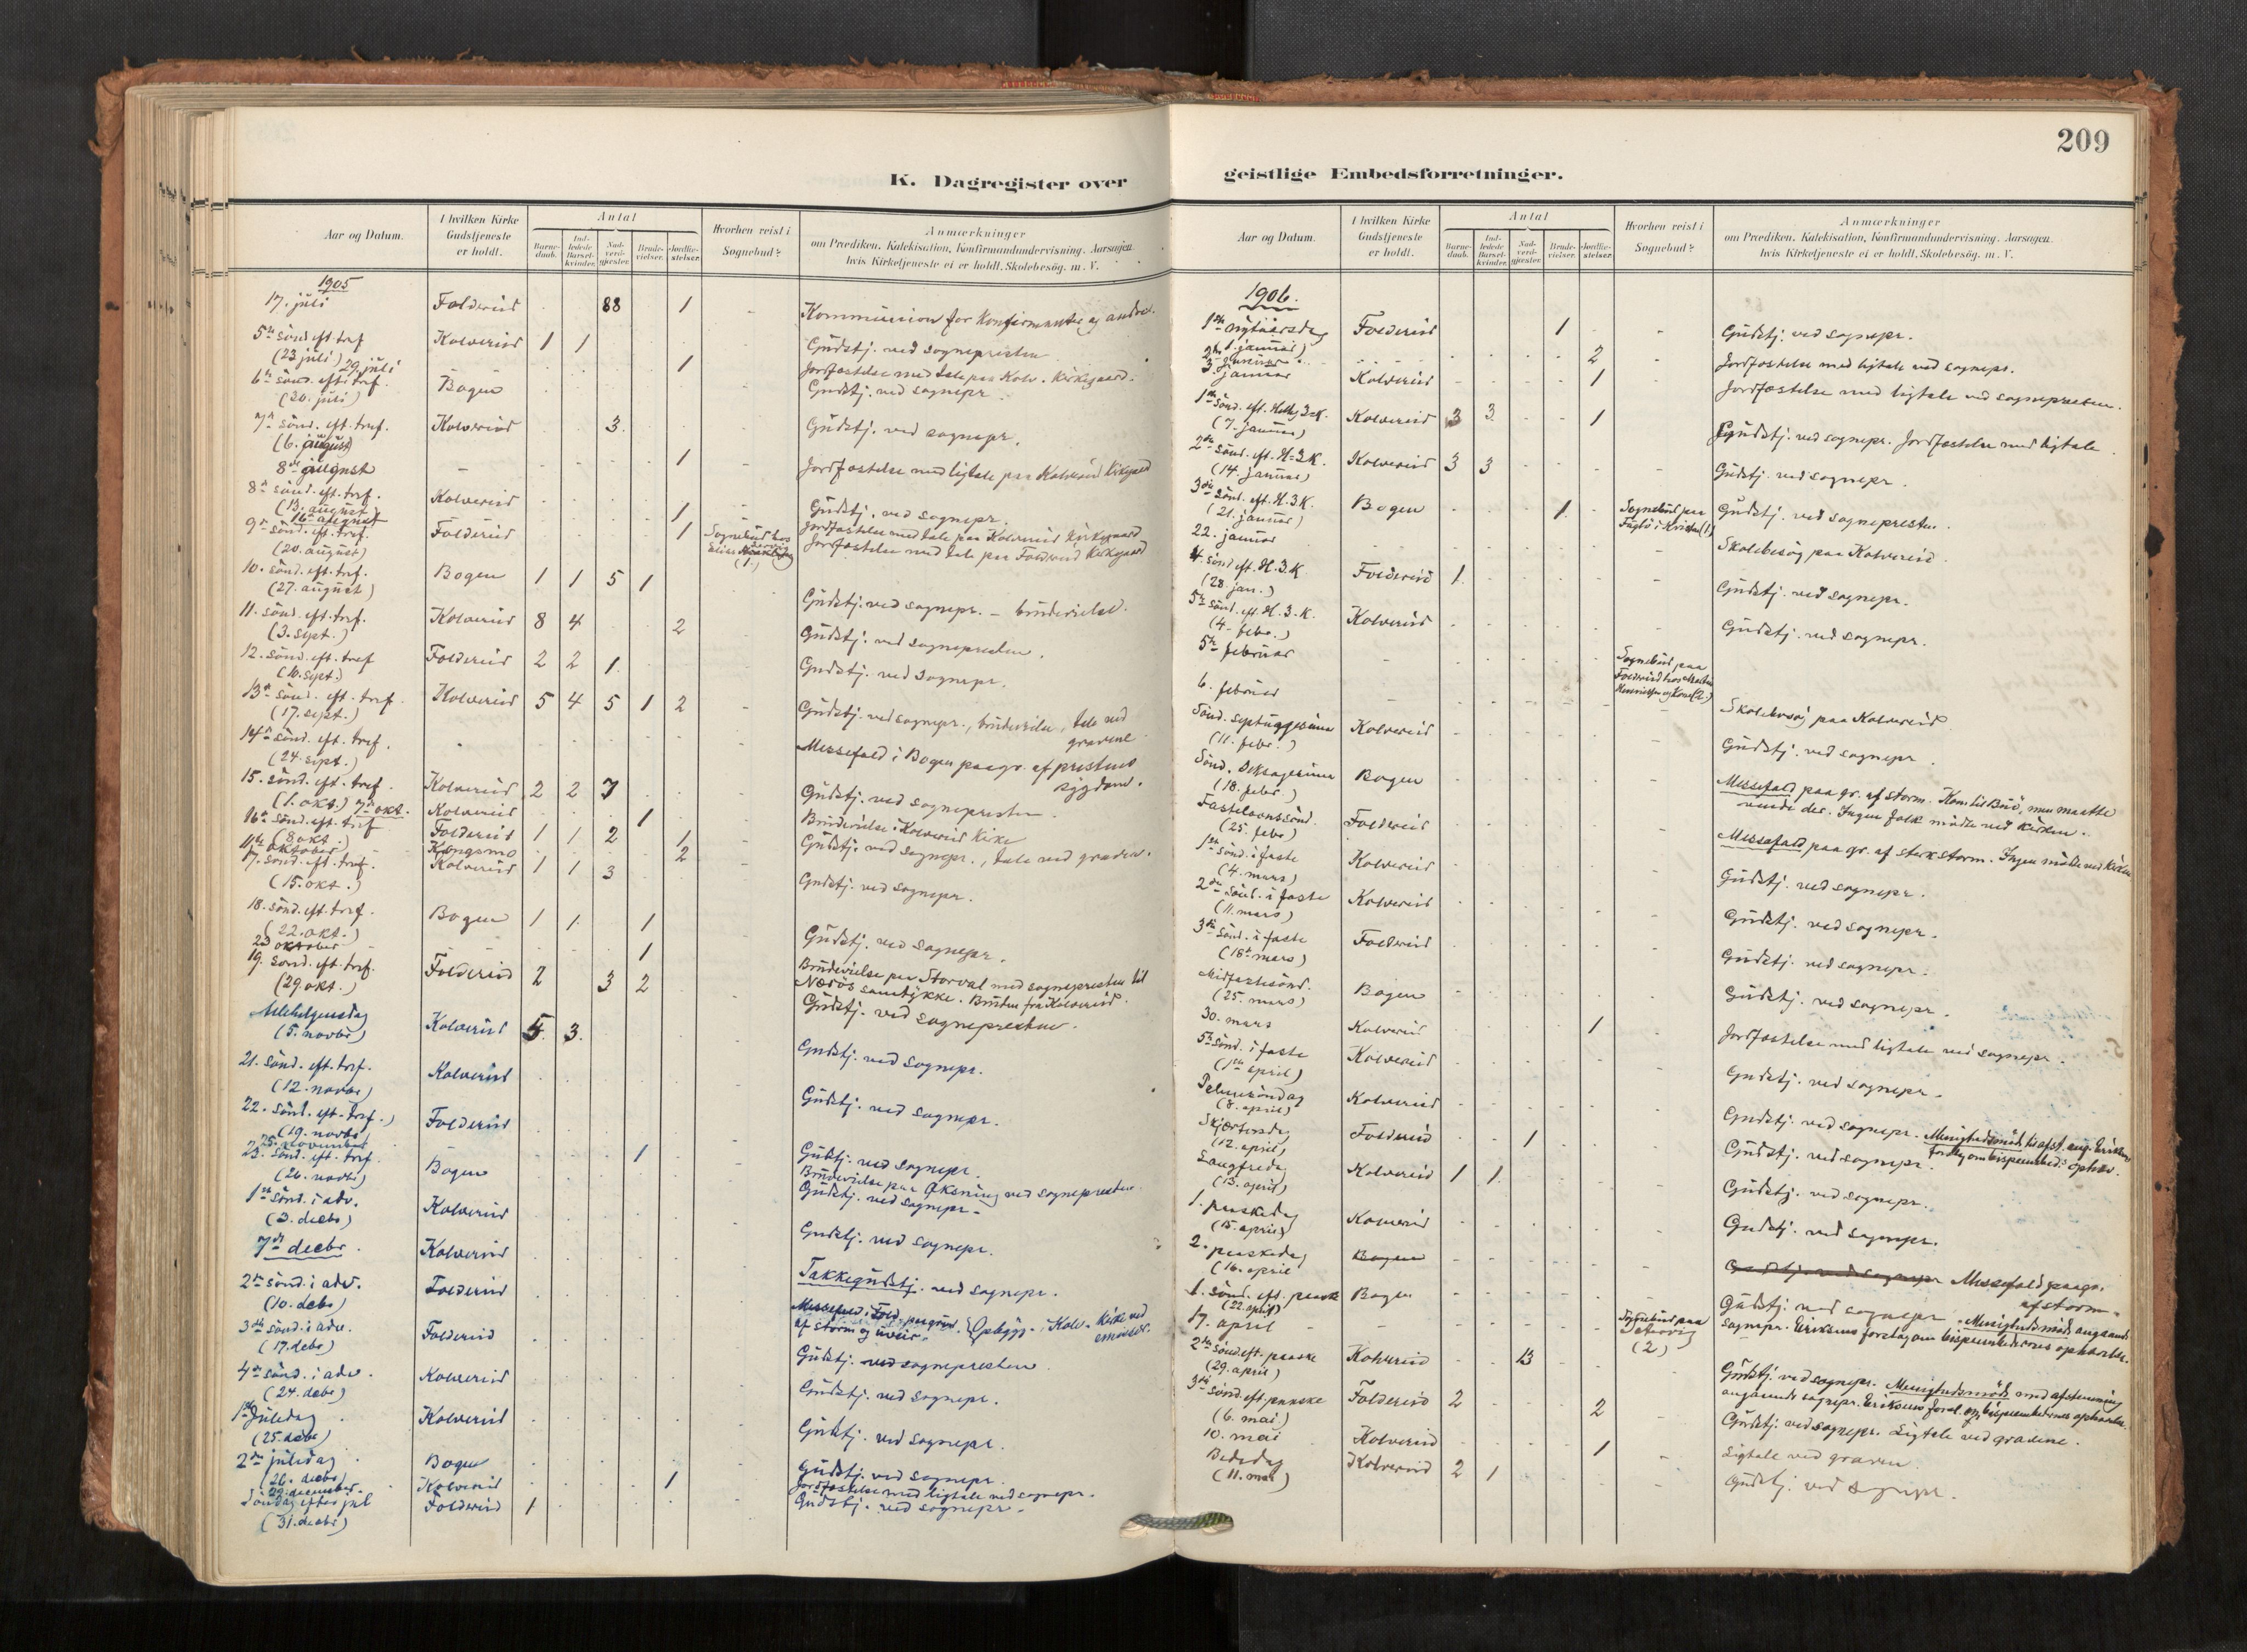 209
K. Dagregister over
Aar og Datum.
I hvilken Kirke Gudstjeneste er holdt.
Antal
Barnedaab.
Indledede Barselkvinder.
Nadverdgjæster.
Brudevielser.
Jordfæstelser.
Hvorhen reist i Sognebud?
Anmærkninger
om Prædiken, Katekisation, Konfirmandundervisning. Aarsagen,
hvis Kirketjeneste ei er holdt, Skolebesøg. m. V.
1905
17. juli Foldereid 88 1 - Kommunion for konfirmanter og andre.
5te sönd. eft. tref. (23 juli) Kolvereid 1 1 Gudstj. ved sognepresten
29. juli 1 Jordfæstelse med tale paa Kolv. kirkegaard.
6te sönd. eft. tref. Bogen Gudstj. ved sognepr.
7de sönd. eft. tref. (6. august) Kolvereid 3 Gudstj. ved sognepr.
8de august - 1 Jordfæstelse med ligtale paa Kolvereid kirkegaard
8de sönd. eft. tref. (13. august) Kolvereid Gudstj. ved sognepr.
16de august 1 Jordfæstelse med tale paa Kolvereid kirkegaard
9de sönd. eft. tref. (20. august) Foldereid 1 Sognebud hos Jordfæstelse med tale paa Foldereid kirkegaard
10. sönd. eft. tref. (27. august) Bogen 1 1 5 1 Gudstj. ved sognepr. - brudevielse.
11. sönd. eft. tref. (3. sept.) Kolvereid 8 4 2 Gudstj. ved sognepresten.
12. sönd. eft. tref (10. sept.) Foldereid 2 2 1 Gudstj. ved sognepr.
13de sönd. eft. tref. (17. sept.) Kolvereid 5 4 5 1 2 - Gudstj. ved sognepr., brudevielse, tale ved gravene
14de sönd. eft. tref. (24. sept.) Messefald i Bogen paa gr. af prestens sygdom.
15. sönd. eft. tref. (1. okt.) Kolvereid 2 2 7 Gudstj. ved sognepresten.
7de okt. Kolvereid 1 Brudevielse i Kolvereid kirke
16de sönd. eft. tref (8 okt.) Foldereid 1 1 2 1 Gudstj. ved sognepr., tale ved graven.
11te oktober Kongsmo 2
17. sönd. eft. tref. (15. okt.) Kolvereid 1 1 3 Gudstj. ved sognepr.
18. sönd. eft. tref. (22. okt.) Bogen 1 1 1 Gudstj. ved sognepr.
23 oktober 1 Brudevielse paa Storval med sognepresten til Nærös samtykke. Bruden fra Kolvereid.
19. sönd. eft. tref. (29. okt.) Foldereid 2 3 2 Gudstj. ved sognepresten.
Allehelgensdag (5. novbr) Kolvereid 5 3 Gudstj. ved sognepr.
21. sönd. eft. tref. (12. novbr) Kolvereid Gudstj. ved sognepr.
22. sönd. eft. tref. (19. novbr) Foldereid Gudstj. ved sognepr.
25. november 1 Brudevielse paa Öksning ved sognepresten
23. sönd. eft. tref. (26. novbr) Bogen Gudstj. ved sognepr.
1ste sönd. i adv. (3. decbr) Kolvereid Gudstj. ved sognepr.
7de decbr. Kolvereid Takkegudstj. ved sognepr.
2den sönd. i adv. (10. debr) Foldereid Messefald i Fold. paa grund af storm og uveir. Opbygg. i Kolv. kirke ved
3die sönd. i adv. (17. debr) Foldereid Gudstj. ved sognepresten.
4de sönd. i adv. (24. debr) Kolvereid Gudstj. ved sognepr.
1ste juledag (25. debr) Kolvereid Gudstj. ved sognepr.
2den juledag (26. decbr) Bogen Gudstj. ved sognepr.
december. Kolvereid 1 Jordfæstelse med ligtale ved sognepr.
Söndag efter jul (31. decbr) Foldereid 1 Gudstj. ved sognepr.
geistlige Embedsforretninger.
Aar og Datum.
I hvilken Kirke Gudstjeneste er holdt.
Antal
Barnedaab.
Indledede Barselkvinder.
Nadverdgjæster.
Brudevielser.
Jordfæstelser.
Hvorhen reist i Sognebud?
Anmærkninger
om Prædiken, Katekisation, Konfirmandundervisning. Aarsagen,
hvis Kirketjeneste ei er holdt, Skolebesøg. m. V.
1906.
1ste nytaarsdag (1. januar) Foldereid 1 - Gudstj. ved sognepr.
2den januar 2 - Jordfæstelse med ligtale ved sognepr.
3. januar Kolvereid 1 Jordfæstelse med ligtale ved sognepresten.
1ste sönd. eft. Hellig 3 K. (7. januar) Kolvereid 3 3 1 Gudstj. ved sognepr. Jordfæstelse med ligtale.
2den sönd. eft. H. 3 K. (14. januar) Kolvereid 3 3 Gudstj. ved sognepr.
3die sönd. eft. H. 3 K. (21. januar) Bogen 1 Sognebud paa Gudstj. ved sognepresten.
22. januar Skolebesög paa Kolvereid.
4. sönd. eft. H. 3. K (28. jan.) Foldereid 1 Gudstj. ved sognepr.
5te sönd. eft. H. 3. K. (4. febr.) Kolvereid Gudstj. ved sognepr.
5te februar - Sognebud paa Foldereid hos
6. februar - Skolebesög paa Kolvereid
Sönd. septuagesima (11. febr.) Kolvereid Gudstj. ved sognepr.
Sönd. Seksagesima (18. febr.) Bogen Messefald paa gr. af storm. Kom til Brö, men maatte vende der. Ingen folk mödte ved kirken.
Fastelavnssönd. (25. febr) Foldereid Messefald paa gr. af sterk storm. Ingen mödte ved kirken
1ste sönd. i faste (4. mars) Kolvereid Gudstj. ved sognepr.
2den sönd. i faste (11. mars) Kolvereid Gudstj. ved sognepr.
3die sönd. i faste (18de mars) Foldereid Gudstj. ved sognepr.
Midfastesönd. (25. mars) Bogen Gudstj. ved sognepr.
30. mars Kolvereid 1 Jordfæstelse med ligtale ved sognepr.
5te sönd. i faste (1ste april) Kolvereid Gudstj. ved sognepr.
Palmesöndag (8. april) Kolvereid Gudstj. ved sognepr. Menighedsmöde
Skjærtorsdag (12. april) Foldereid 1 Gudstj. ved sognepr.
Langfredag (13. april) Kolvereid 1 1 Gudstj. ved sognepr.
1. paaskedag (15. april) Kolvereid Gudstj. ved sognepr.
2. paaskedag (16. april Bogen Gudstj. ved sognepr Messefald paa gr. af storm.
1. sönd. eft. paaske (22. april) Bogen Gudstj. ved sognepr. Menighedsmöde angaaende sognepr. Eriksens forslag om bispeembedernes ophævelse.
17. april - Sognebud paa (2)
2den sönd. eft. paaske (29. april) Kolvereid 13 Gudstj. ved sognepr. Menighedsmöde med afstemning angaaende sognepr. Eriksens forsl. om bispeembedernes ophævelse.
3die sönd. eft. paaske (6. mai) Foldereid 2 2 Gudstj. ved sognepr. Ligtale ved gravene.
10. mai Kolvereid 1 Ligtale ved graven.
Bededag (11. mai) Kolvereid 2 1 Gudstj. ved sognepr.